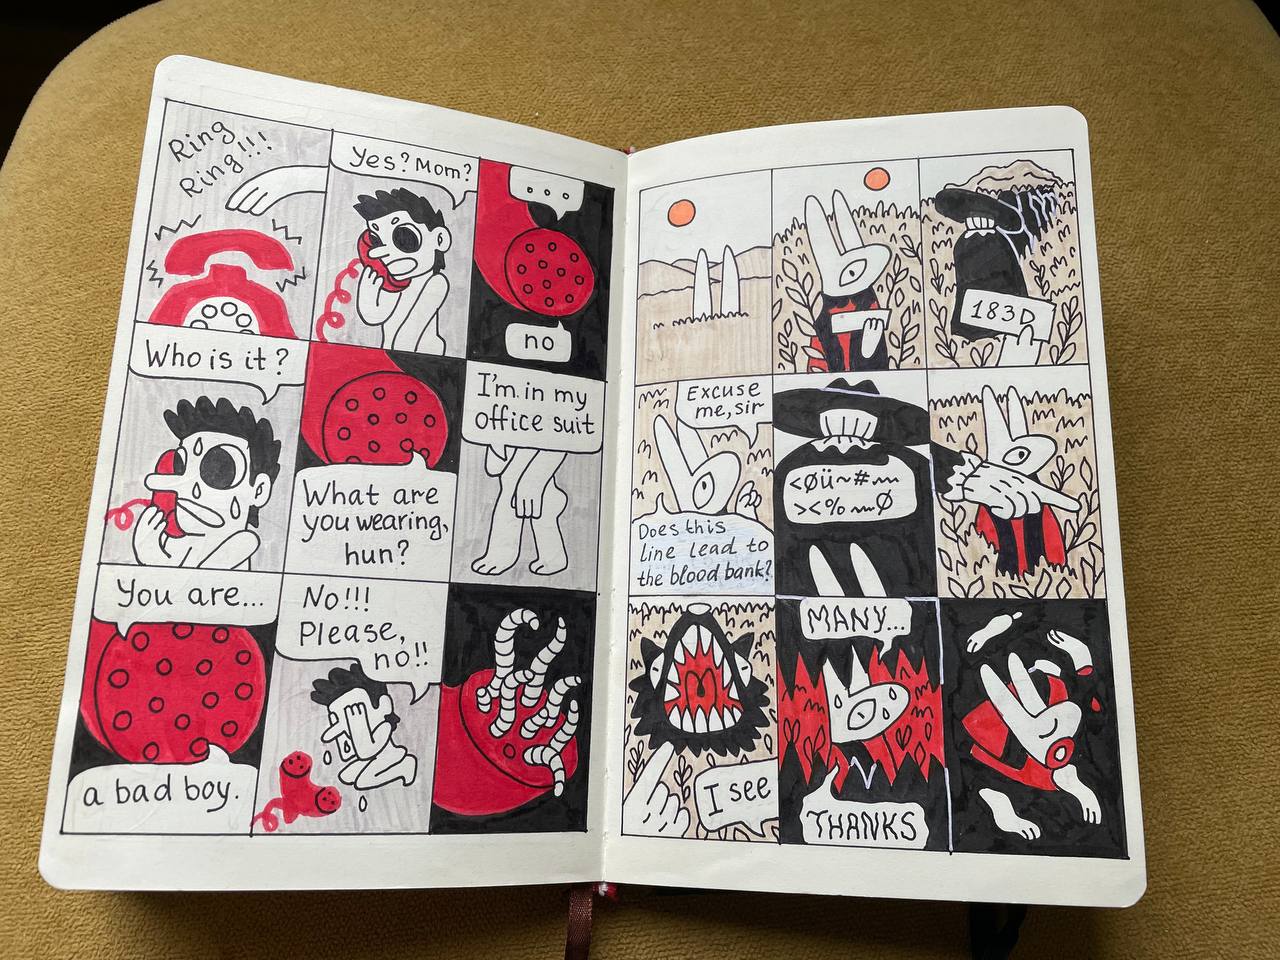 Ring
Ring!!!
Yes? Mom?
...
no
Who is it?
What are
you wearing,
hun?
I'm in my
office suit
You are...
a bad boy.
No!!!
Please,
no!!
183D
Excuse
me, sir
Does this
line lead to
the blood bank?
<Øü~#~
><%~Ø
I see
MANY...
THANKS